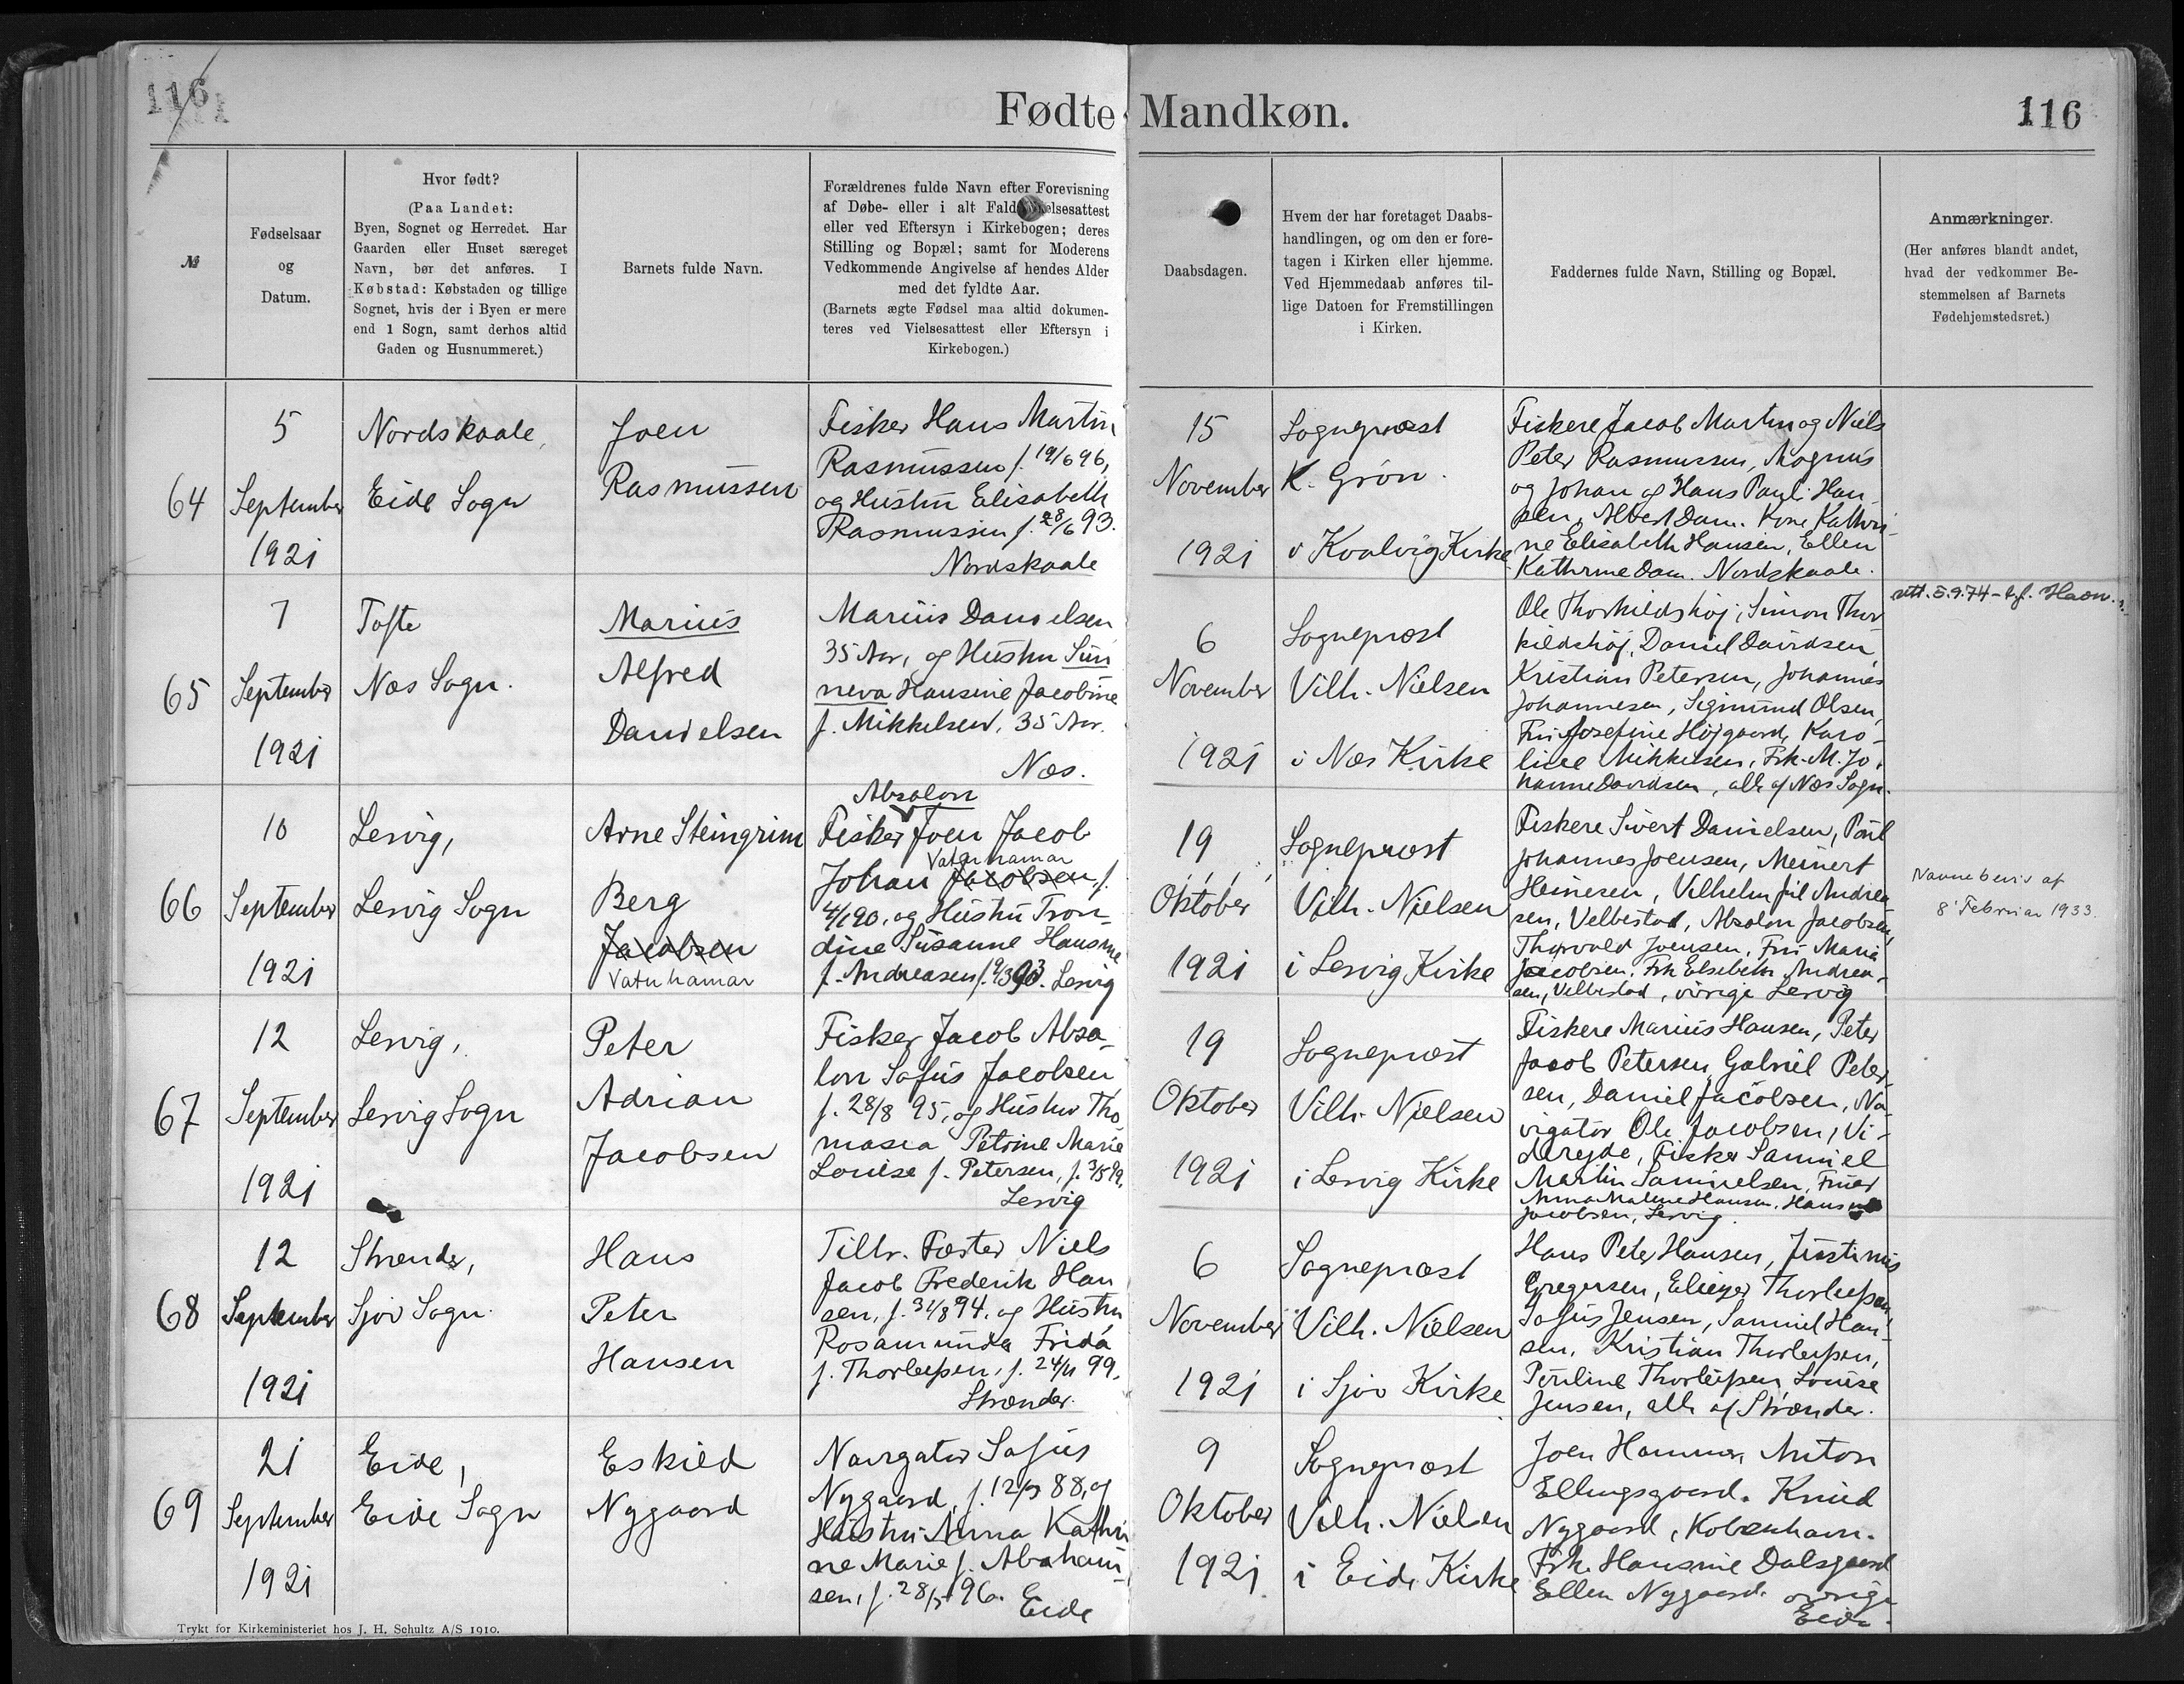 116
Fødte Mandkøn.
116
№
Fødselsaar
og
Datum.
Hvor født?
(Paa Landet:
Byen, Sognet og Herredet. Har
Gaarden eller Huset særeget
Navn, bør det anføres. I
Købstad: Købstaden og tillige
Sognet, hvis der i Byen er mere
end 1 Sogn, samt derhos altid
Gaden og Husnummeret.)
Barnets fulde Navn.
Forældrenes fulde Navn efter Forevisning
af Døbe- eller i alt Fald
eller ved Eftersyn i Kirkebogen; deres
Stilling og Bopæl; samt for Moderens
Vedkommende Angivelse af hendes Alder
med det fyldte Aar.
(Barnets ægte Fødsel maa altid dokumen-
teres ved Vielsesattest eller Eftersyn i
Kirkebogen.)
Daabsdagen.
Hvem der har foretaget Daabs-
handlingen, og om den er fore-
tagen i Kirken eller hjemme.
Ved Hjemmedaab anføres til-
lige Datoen for Fremstillingen
i Kirken.
Faddernes fulde Navn, Stilling og Bopæl.
Anmærkninger.
(Her anføres blandt andet,
hvad der vedkommer Be-
stemmelsen af Barnets
Fødehjemstedsret.)
64
5
September
1921
Nordskaale,
Eide Sogn
Joen
Rasmussen
Fisker Hans Martin
Rasmussen f. 19/6 96,
og Hustru Elisabeth
Rasmussen f. 28/6 93.
Nordskaale
15
November
1921
Sognepræst
K. Grøn.
i Kvalvig Kirke
Fiskere Jacob Martin og Niels
Peter Rasmussen, Magnus
og Johan og Hans Pauli Han-
sen, Albert Dam. Kone Kathri-
ne Elisabeth Hansen, Ellen
Kathrine Dam. Nordskaale.
65
7
September
1921
Tofte
Næs Sogn.
Marius
Alfred
Danielsen
Marius Danielsen
35 Aar, og Hustru Sun
neva Hansine Jacobine
f. Mikkelsen, 35 Aar.
Næs.
6
November
1921
Sognepræst
Vilh. Nielsen
i Næs Kirke
Ole Thorkildshøj, Simon Thor
kildshøj, Daniel Davidsen,
Kristian Petersen, Johannes
Johannesen, Sigmund Olsen,
Fru Josefine Højgaard, Karo-
line Mikkelsen, Frk. M. Jo-
hanne Davidsen, alle af Næs Sogn.
att. 5.9.74
66
10
September
1921
Lervig,
Lervig Sogn
Arne Steingrim
Berg
Jacobsen
Vatnhamar
Absalon
Fisker Joen Jacob
Vatnhamar
Johan Jacobsen f.
4/1 90, og Hustru Tron-
dine Susanne Hansine
f. Andreasen f. Lervig
19
Oktober
1921
Sognepræst
Vilh. Nielsen
i Lervig Kirke
Fiskere Sivert Danielsen, Poul
Johannes Joensen, Meinert
Heinesen, Vilhelm Andrea
sen, Velbestad, Absalon Jacobsen,
Thorvald Joensen, Fru Maria
Jacobsen, Frk Elsebeth Andrea-
sen, Velbestad, øvrige Lervig
Navnebevis af
8' Februar 1933.
67
12
September
1921
Lervig,
Lervig Sogn
Peter
Adrian
Jacobsen
Fisker Jacob Absa-
lon Sofus Jacobsen
f. 28/8 95, og Hustru Tho
masia Petrine Marie
Louise f. Petersen, f. 3/5 99,
Lervig
19
Oktober
1921
Sognepræst
Vilh. Nielsen
i Lervig Kirke
Fiskere Marius Hansen, Peter
Jacob Petersen, Gabriel Peter-
sen, Daniel Jacobsen, Na-
vigatør Ole Jacobsen, Vi-
derejde, Fisker Samuel
Martin Samuelsen, Fruer
Anna Malene Hansen, Hansine
Jacobsen, Lervig.
68
12
September
1921
Strænder,
Sjov Sogn.
Hans
Peter
Hansen
Tilhr. Fæster Niels
Jacob Frederik Han
sen, f. 31/8 94, og Hustru
Rosamunda Frida
f. Thorleifsen, f. 24/11 99,
Strænder.
6
November
1921
Sognepræst
Vilh. Nielsen
i Sjov Kirke
Hans Peter Hansen, Justinus
Gregersen, Elieser Thorleifsen,
Sofus Jensen, Samuel Han-
sen, Kristian Thorleifsen,
Pouline Thorleifsen, Louise
Jensen, alle af Strænder.
69
21
September
1921
Eide,
Eide Sogn
Eskild
Nygaard
Navigatør Sofus
Nygaard, f. 88, og
Hustru Anna Kathri
ne Marie f. Abraham-
sen, f. 96. Eide
9
Oktober
1921
Sognepræst
Vilh. Nielsen
i Eide Kirke
Joen Hammer, Anton
Ellingsgaard. Knud
Nygaard, København.
Frk. Hansine Dalsgaard
Ellen Nygaard. øvrige
Eide.
Trykt for Kirkeministeriet hos J. H. Schultz A/S 1910.